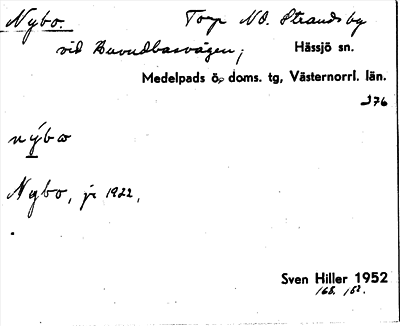 Nybo. Torp NO. Strandsby
vid Huvudbasvägen; Hässjö sn.
Medelpads ö. doms. tg, Västernorrl. län.
276
nýbo
Nybo, jr 1922,
Sven Hiller 1952
168. 182.